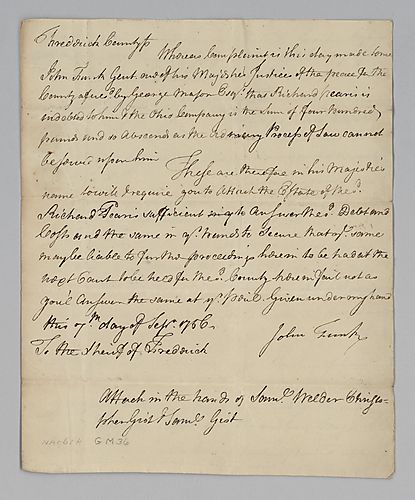 Fredrick County Ss
Whereas Complaint is this day made to me
John Funk Gent. one of his Majesties Justice of the peace for the
County afores.d by George Mason Esq.r that Richard Pearis is
indebted to him & the Ohio Company in the Sum of four hundred
pounds and so absconds as the ordinary Process of Law cannot
be served upon him
These are therefore in his Majestie's
name to will & require you to Attach the Estate of the s.d
Richard Pearis sufficient in y.r to Answer the s.d Debt and
Costs and the same in y.r hands to Secure that y.e same
may be liable to further proceedings herein to be had at the
next Court to be held for the s.d County herein fail not as
youl Answer the same at y.r Peril. Given under my hand
this 7.th day of Sep.r 1756.
To the Sheriff of Fredrick
John Funk
Attach in the hands of Sam.l Welder Christo-
pher Gist & Sam.l Gist
GM36